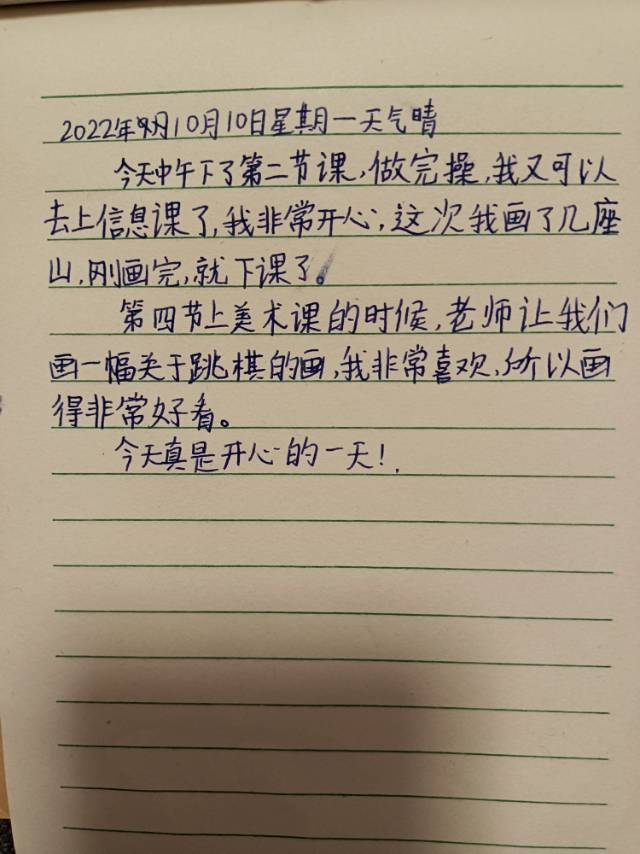 2022年10月10日星期一天气晴
今天中午下了第二节课,做完操,我又可以
去上信息课了,我非常开心,这次我画了几座
山,刚画完,就下课了。
第四节上美术课的时候,老师让我们
画一幅关于跳棋的画,我非常喜欢,所以画
得非常好看。
今天真是开心的一天!